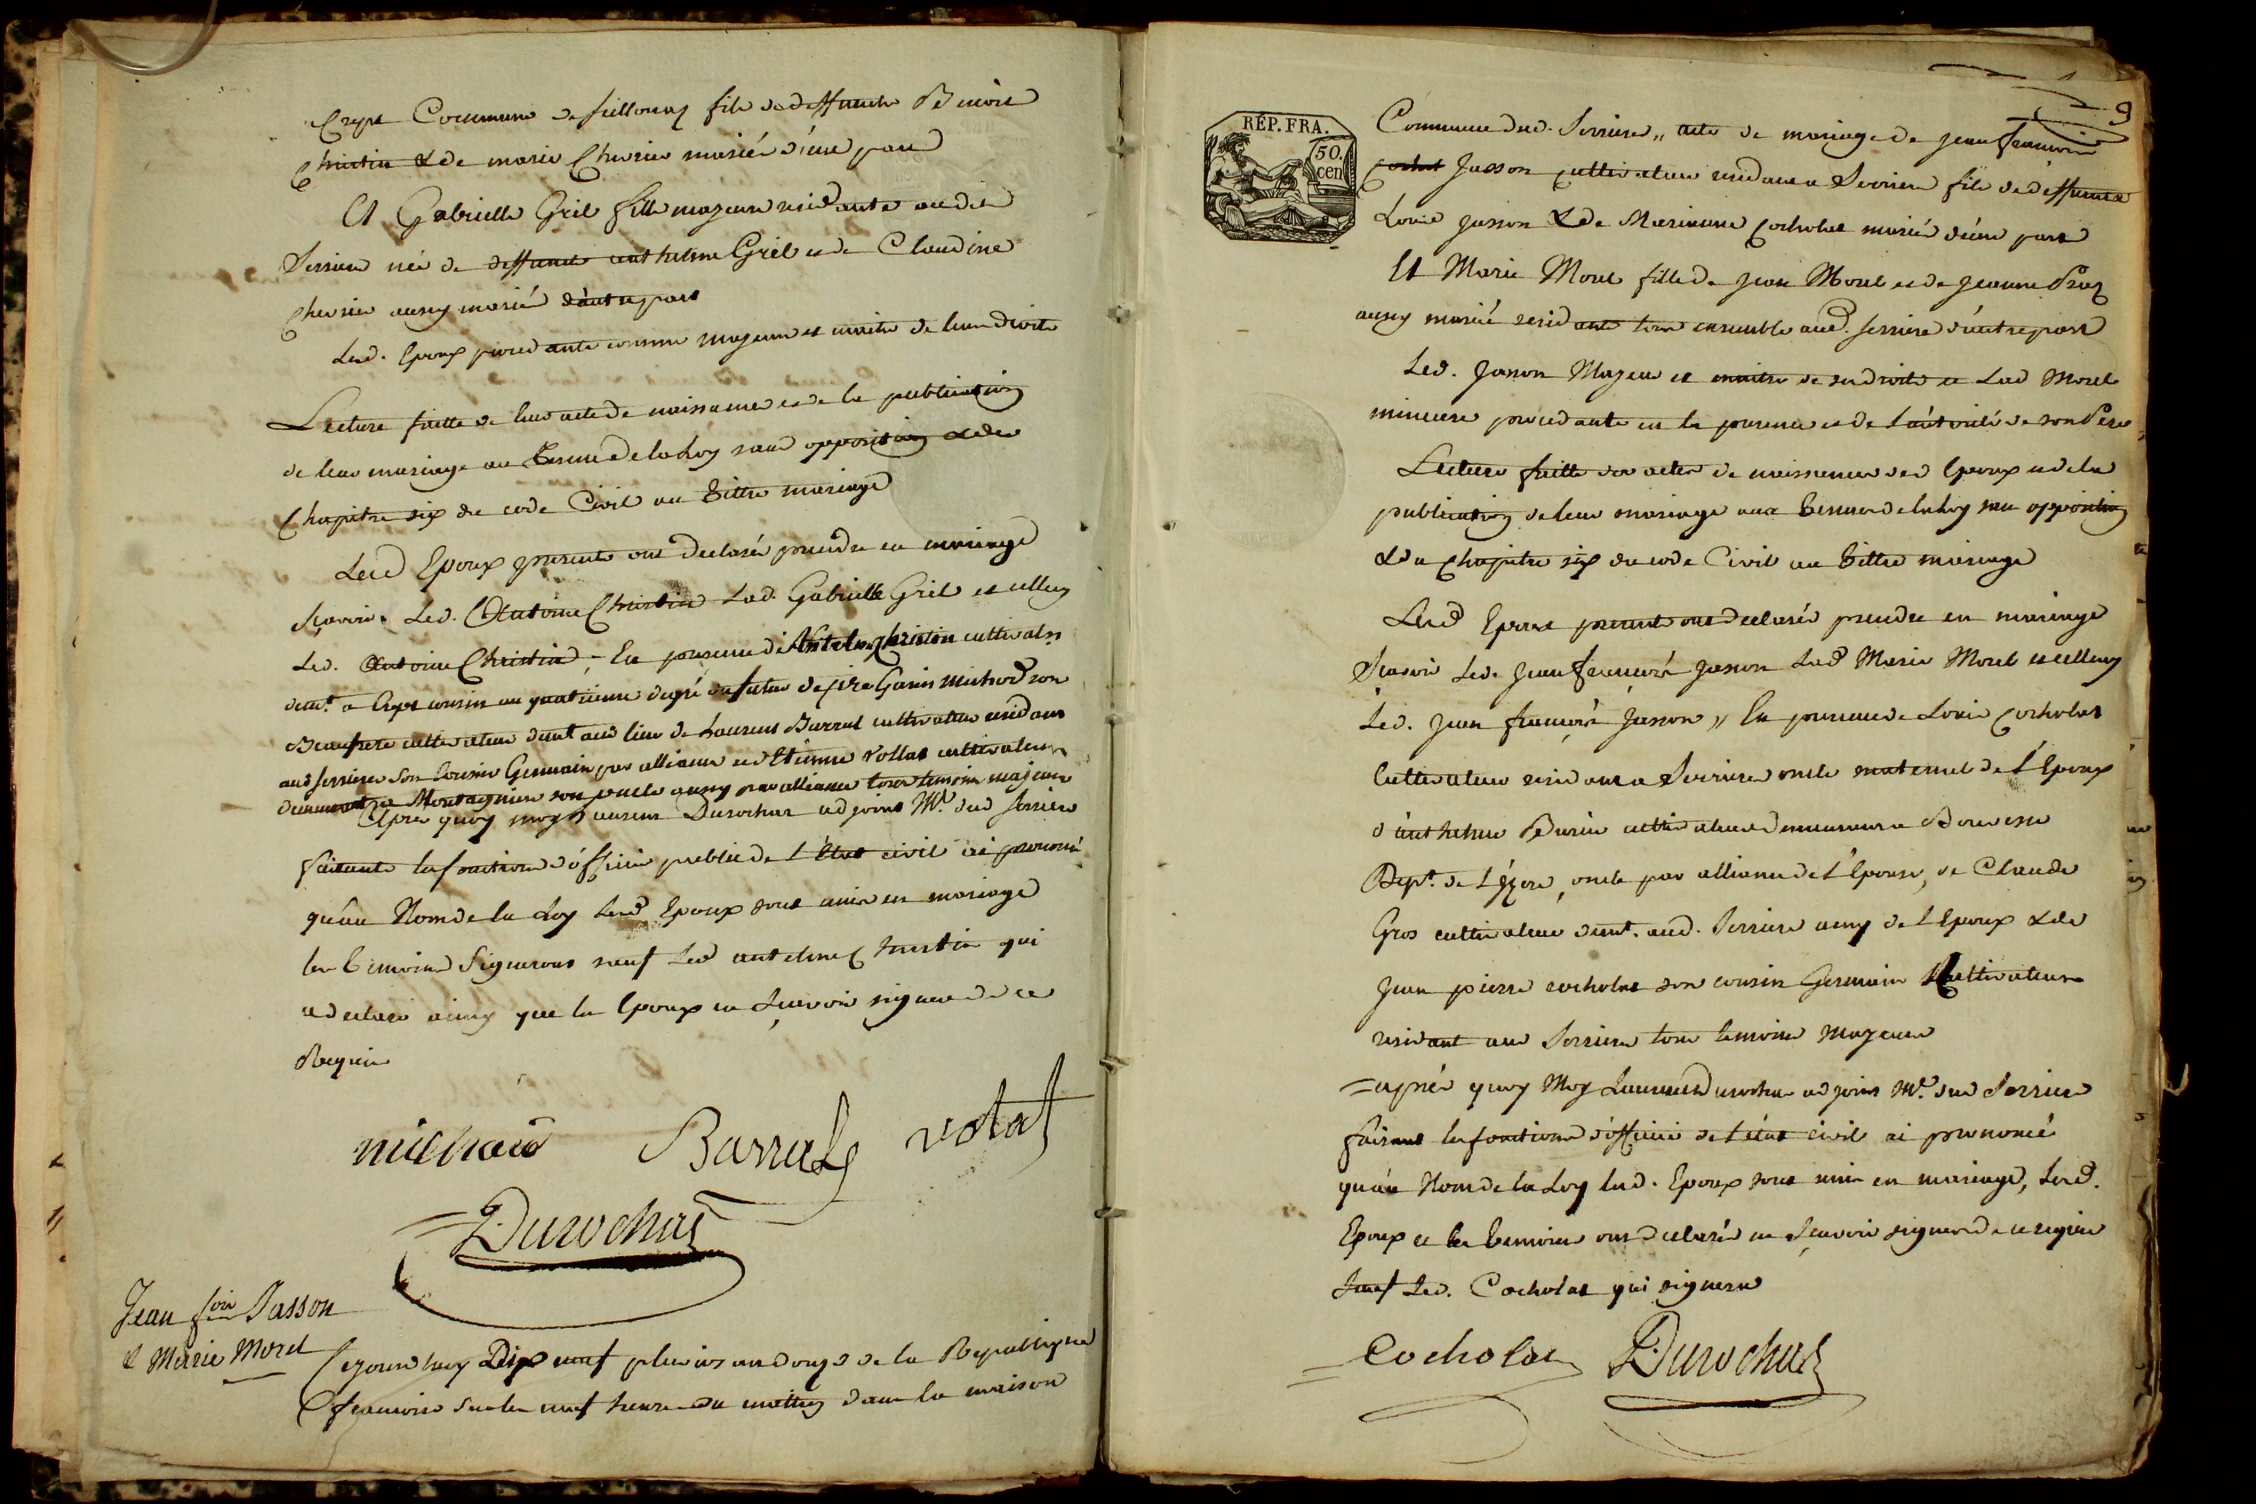 Crept Commune de seillonaz fils de deffuncts Benoit
Christin & de marie Chevrier mariés d'une part
Et Gabrielle Gril fille majeure residante audit
Serriere née de deffunct anthelme Gril et de Claudine
Chevrier aussy mariés d'autre part
Lesd. Epoux procedants comme majeurs et maitre de leurs droits
Lecture faitte de leurs acte de naissance et de la publication
de leur mariage au terme de la Loy sans opposition & du
Chapitre six du code Civil au tittre mariage
Lesd Epoux presents ont declarés prendre en mariage
sçavoir Led. Antoine Christin Lad. Gabrielle Gril et icelle
Led. Antoine Christin - En presence de Antelme Christin cultivatr
demt. a Crept cousin au quatrieme degré du futur de michod son
Beaufrere cultivateur dud lieu de Laurens Barral cultivateur residant
aud Serriere son Cousin Germain par alliance et d'Etienne vollat cultivateur
Montagnieu son oncle aussy par alliance tous temoins majeurs
Après quoy moy Durochat adjoint Mr. dud Serriere
faisant les fonctions d'officier public de L'état civil ai prononcé
qu'au Nom de la Loy Lesd Epoux sont unis en mariage
les temoins signeront sauf Led antelme Christin qui
a declaré ainsy que les Epoux ne sçavoir signer de ce
Requis
michaud Barral votat
Durochat
Jean fois Jasson
& Marie Morel
Cejourd'huy Dix neuf pluviose an douze de la Republique
françoise sur les neuf heures du mattin dans la maison
9
RÉP. FRA.
50.
cen
Commune dud. Serriere, acte de mariage de jean francois
Jasson cultivateur residant a Serriere fils de deffunct
Louis Jasson & de Marianne Cocholat mariés d'une part
Et Marie Morel fille de Jean Morel et de Jeanne
aussy mariés residants tous ensemble aud. Serriere d'autre part
Led. Jasson Majeur et maitre de ses droits et Lad Morel
mineure procedante en la presence et de L'autorité de son Pere
Lecture faitte des actes de naissance desd Epoux et de la
publication de leur mariage aux termes de la Loy sans opposition
& du Chapitre six du code Civil au tittre mariage
Lesd Epoux presents ont declarés prendre en mariage
Scavoir Led. Jean francois Jasson Lad Marie Morel et icelle
Led. Jean francois Jasson, En presence de Louis Cocholat
Cultivateur residant a Serriere oncle maternel de L'Epoux
d'anthelme cultivateur demeurant a Bouvesse
Dept. de L'Izere, oncle par alliance de L'Epouse, de Claude
Gros cultivateur demt. aud. Serriere amy de L'Epoux & de
Jean pierre cocholat son cousin Germain Cultivateur
residant aud Serriere tous temoins Majeurs
= après quoy Moy Laurent Durochat adjoint Mr. dud Serriere
faisant les fonctions d'officier de L'état civil ai prononcé
qu'au Nom de la Loy lesd. Epoux sont unis en mariage, Lesd.
Epoux et les temoins ont declarés ne sçavoir signer de ce requis
sauf Led. Cocholat qui signera
Cocholat Durochat